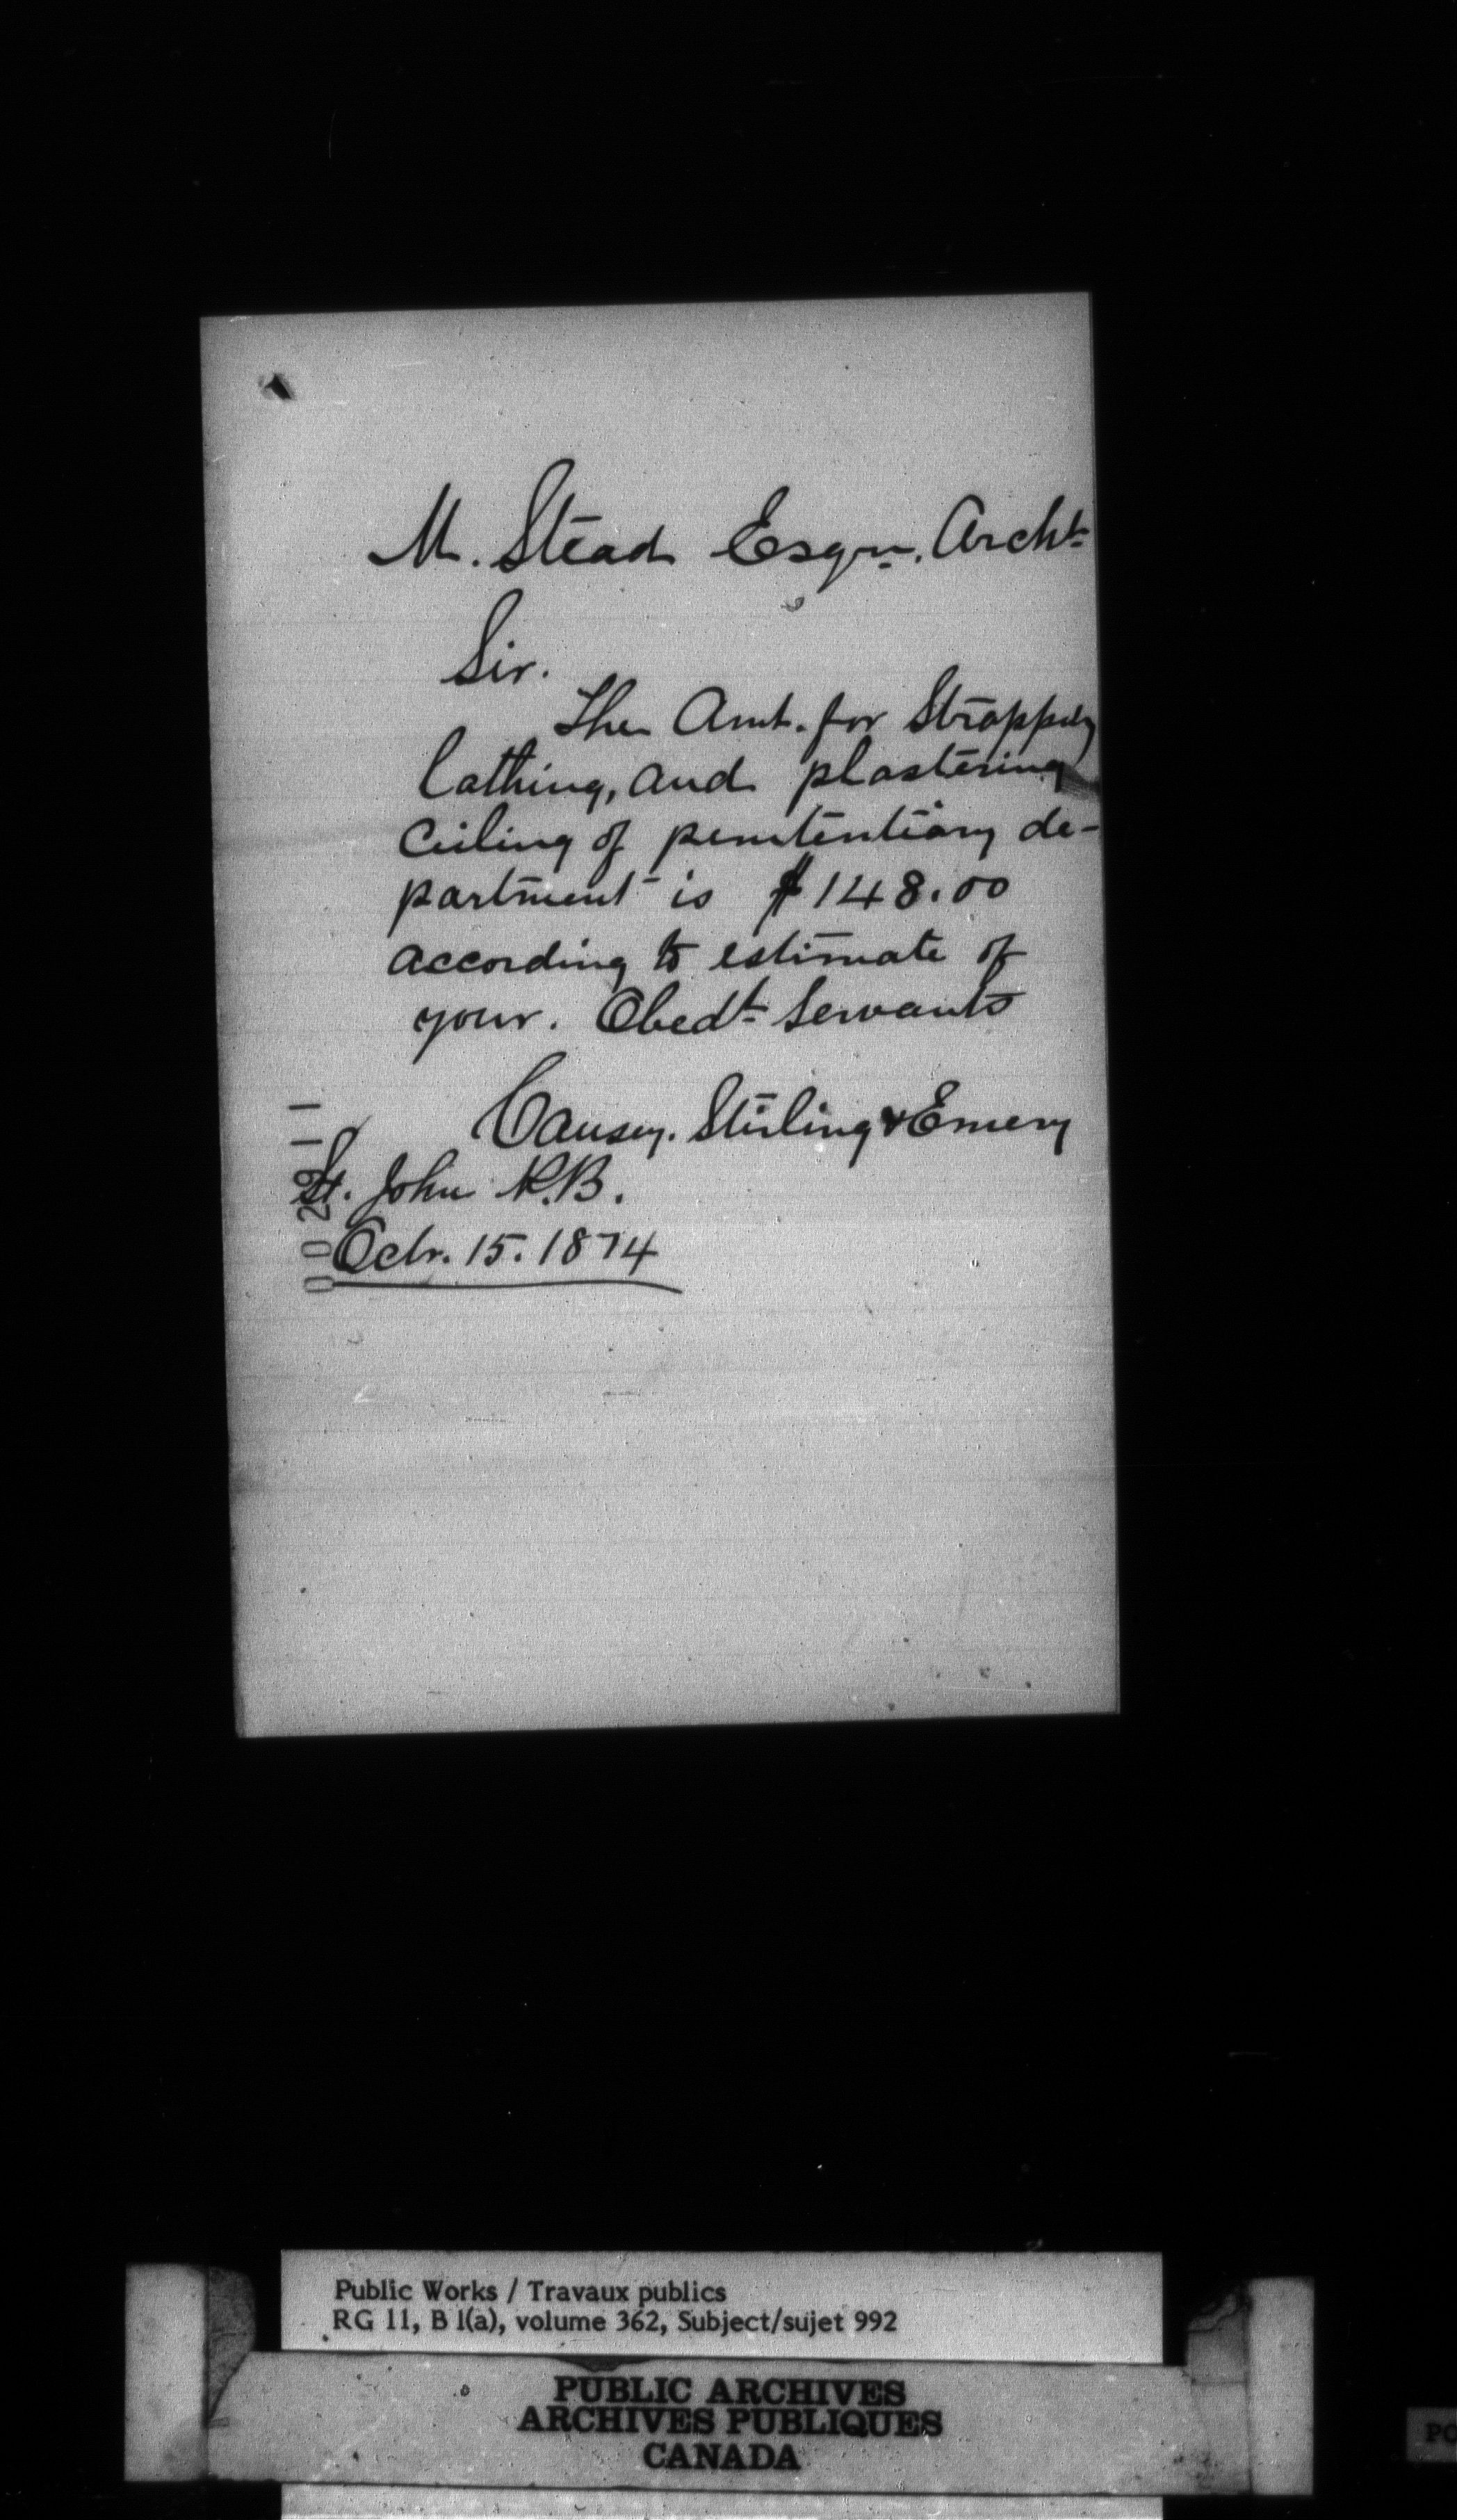 M. Stead Esqr. Archt.
Sir.
The Amt. for Strapping
lathing, and plastering
Ceiling of penitentiary de-
partment is $148.00
according to estimate of
your. Obedt. Servants
Causey. Stirling & Emery
St. John N.B.
Octr. 15. 1874
Public Works / Travaux publics
RG 11, B 1(a), volume 362, Subject/sujet 992
PUBLIC ARCHIVES
ARCHIVES PUBLIQUES
CANADA
PO